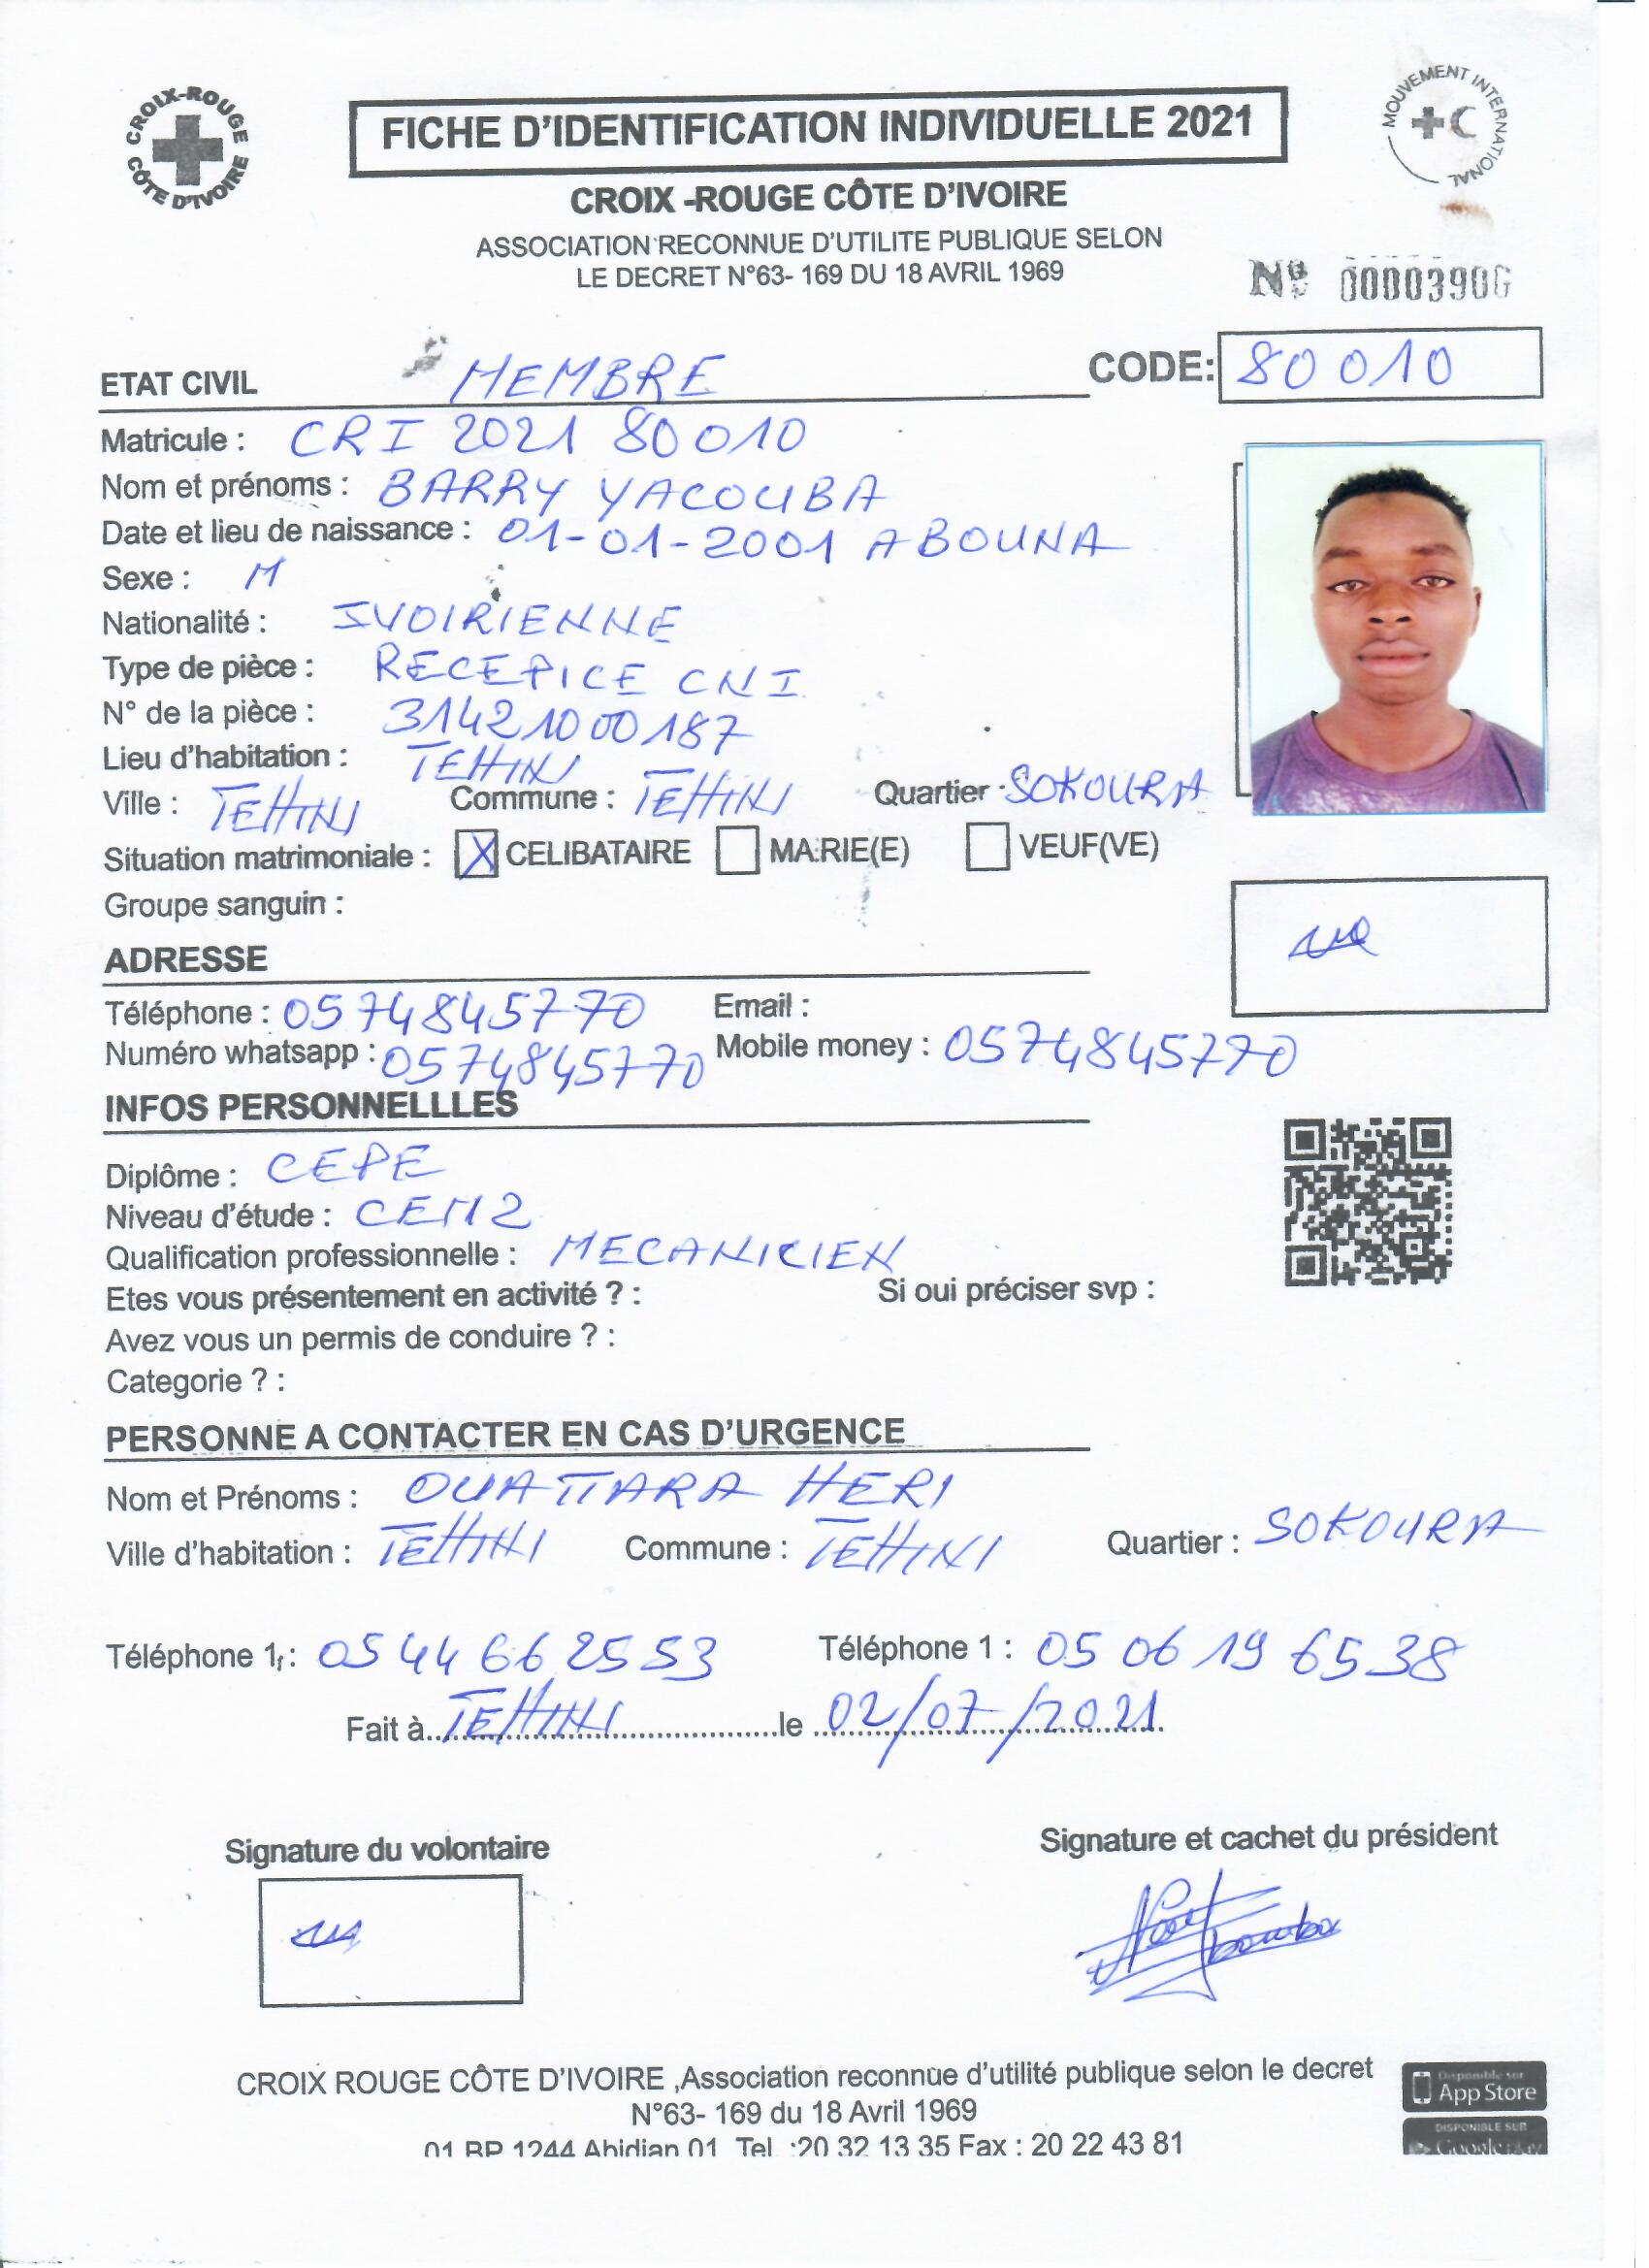 CROIX-ROUGE
CÔTE D'IVOIRE
FICHE D'IDENTIFICATION INDIVIDUELLE 2021
MOUVEMENT INTERNATIONAL
CROIX -ROUGE CÔTE D'IVOIRE
ASSOCIATION RECONNUE D'UTILITE PUBLIQUE SELON
LE DECRET N°63- 169 DU 18 AVRIL 1969
Nº 0000390G
ETAT CIVIL MEMBRE CODE: 80010
Matricule : CRI 2021 80010
Nom et prénoms : BARRY YACOUBA
Date et lieu de naissance : 01-01-2001 ABOUNA
Sexe : M
Nationalité : IVOIRIENNE
Type de pièce : RECEPICE CNI
N° de la pièce : 31421000187
Lieu d'habitation : TEHINI
Ville : TEHINI Commune : TEHINI Quartier : SOKOURA
Situation matrimoniale : X CELIBATAIRE MARIE(E) VEUF(VE)
Groupe sanguin :
ADRESSE
Téléphone : 0574845770 Email :
Numéro whatsapp : 0574845770 Mobile money : 0574845770
INFOS PERSONNELLLES
Diplôme : CEPE
Niveau d'étude : CEM2
Qualification professionnelle : MECANICIEN
Etes vous présentement en activité ? : Si oui préciser svp :
Avez vous un permis de conduire ? :
Categorie ? :
PERSONNE A CONTACTER EN CAS D'URGENCE
Nom et Prénoms : OUATTARA HERI
Ville d'habitation : TEHINI Commune : TEHINI Quartier : SOKOURA
Téléphone 1 : 05 44 66 25 53 Téléphone 1 : 05 06 19 65 38
Fait à TEHINI le 02/07/2021
Signature du volontaire Signature et cachet du président
CROIX ROUGE CÔTE D'IVOIRE ,Association reconnue d'utilité publique selon le decret
N°63- 169 du 18 Avril 1969
01 BP 1244 Abidjan 01 Tel :20 32 13 35 Fax : 20 22 43 81
Disponible sur
App Store
DISPONIBLE SUR
Google play